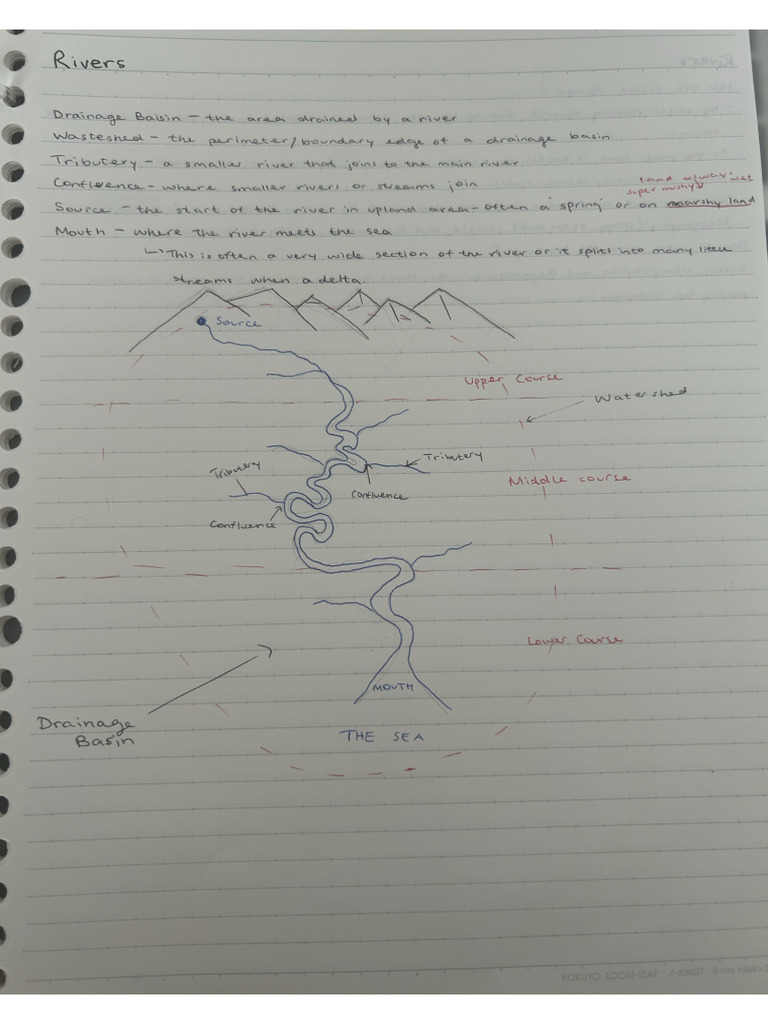 Rivers
Drainage Baisin – the area drained by a river
Wasteshed – the perimeter/boundary edge of a drainage basin
Tributery – a smaller river that joins to the main river
Confluence – where smaller rivers or streams join
land always wet
super mushy
Source – the start of the river in upland area – often a 'spring' or on marshy land
Mouth – where the river meets the sea
↳ This is often a very wide section of the river or it splits into many little
streams when a delta.
Source
Upper Course
Watershed
Tributery
Tributery
Middle course
Confluence
Confluence
Lower Course
MOUTH
Drainage
Basin
THE SEA
KOKUYO LOOSE-LEAF